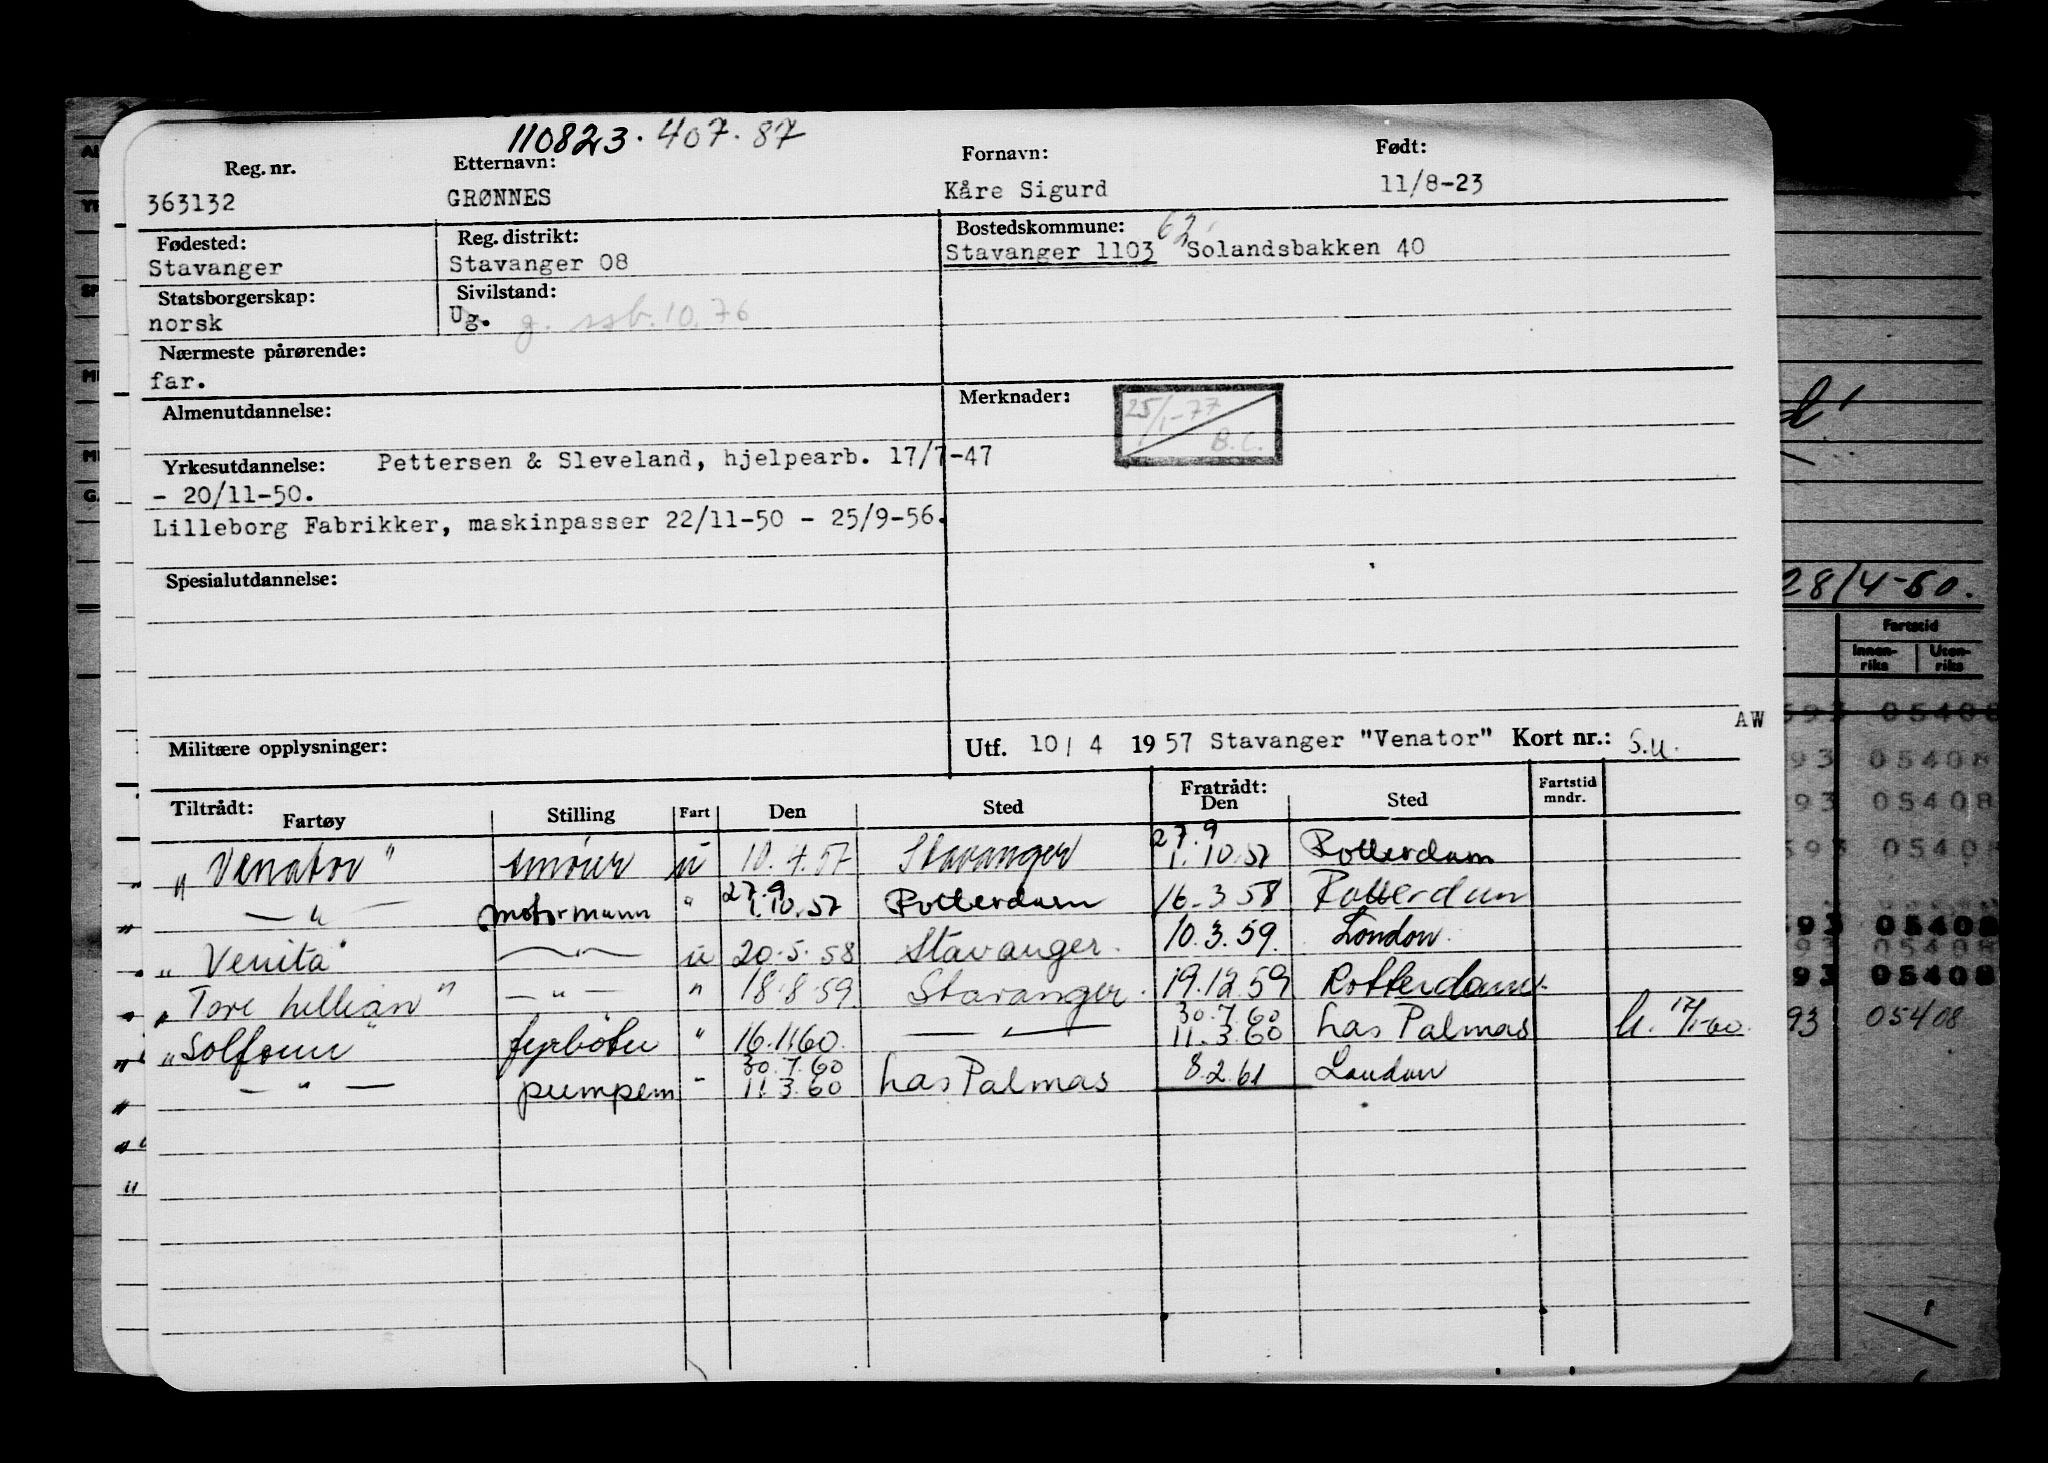 110823. 407. 87
Reg. nr. Etternavn: Fornavn: Født:
363132 GRØNNES Kåre Sigurd 11/8-23
Fødested: Reg. distrikt: Bostedskommune: 62
Stavanger Stavanger 08 Stavanger 1103 Solandsbakken 40
Statsborgerskap: Sivilstand:
norsk Ug. g. ssb. 10. 76
Nærmeste pårørende:
far.
Almenutdannelse: Merknader: 25/1-77
B.C.
Yrkesutdannelse: Pettersen & Sleveland, hjelpearb. 17/7-47
- 20/11-50.
Lilleborg Fabrikker, maskinpasser 22/11-50 - 25/9-56.
Spesialutdannelse:
28/4-50.
Fartstid
Innen-riks Uten-riks
AW
Militære opplysninger: Utf. 10/ 4 1957 Stavanger "Venator" Kort nr.: S.u.
Tiltrådt: Fratrådt: Fartstid mndr.
Fartøy Stilling Fart Den Sted Den Sted
27.9
"Venator" smører u 10.4.57 Stavanger 1.10.57 Rotterdam
27.9
— " — motormann " 1.10.57 Rotterdam 16.3.58 Rotterdam
"Venita" — " — u 20.5.58 Stavanger. 10.3.59. London.
"Tore hellian" — " — " 18.8.59. Stavanger. 19.12.59 Rotterdam.
30.7.60
"Solfonn" fyrbøter " 16.1.60. — " — 11.3.60 Las Palmas 17/1-60.
30.7.60
— " — pumpem " 11.3.60 Las Palmas 8.2.61 London
93 05408